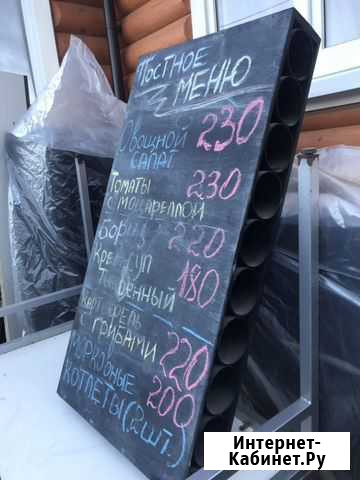 Постное
меню
Овощной 230
салат
Томаты 230
с моцареллой
Борщ 220
Крем суп 180
Тыквенный
Картофель
с грибами 220
Морковные 200
котлеты (2 шт.)
Интернет-
Кабинет.Ру